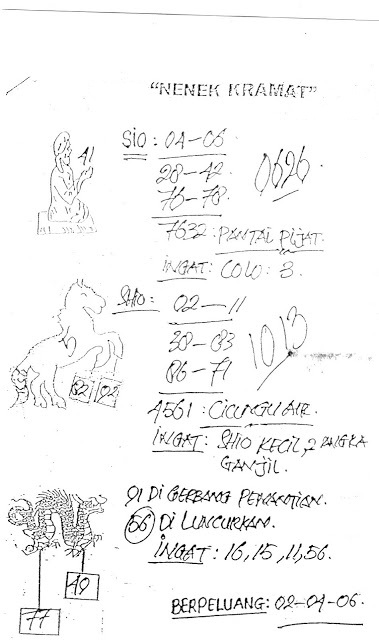 "NENEK KRAMAT"
41
SIO : 04-06
28-42
76-78
0626
7632 : PANTAI PIJAT.
INGAT : COLO : 8.
SHIO : 02-11
38-83
86-71
1013
62 92
4561 : CICUNGU AIR.
INGAT : SHIO KECIL, 2 ANGKA
GANJIL.
91 DI GERBANG PENANTIAN.
56 DI LUNCURKAN.
INGAT : 16, 15, 11, 56.
49
77
BERPELUANG : 02-04-06.